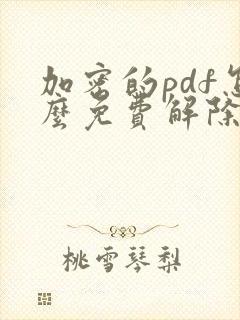 加密的pdf怎
麼免費解除
桃雪琴梨